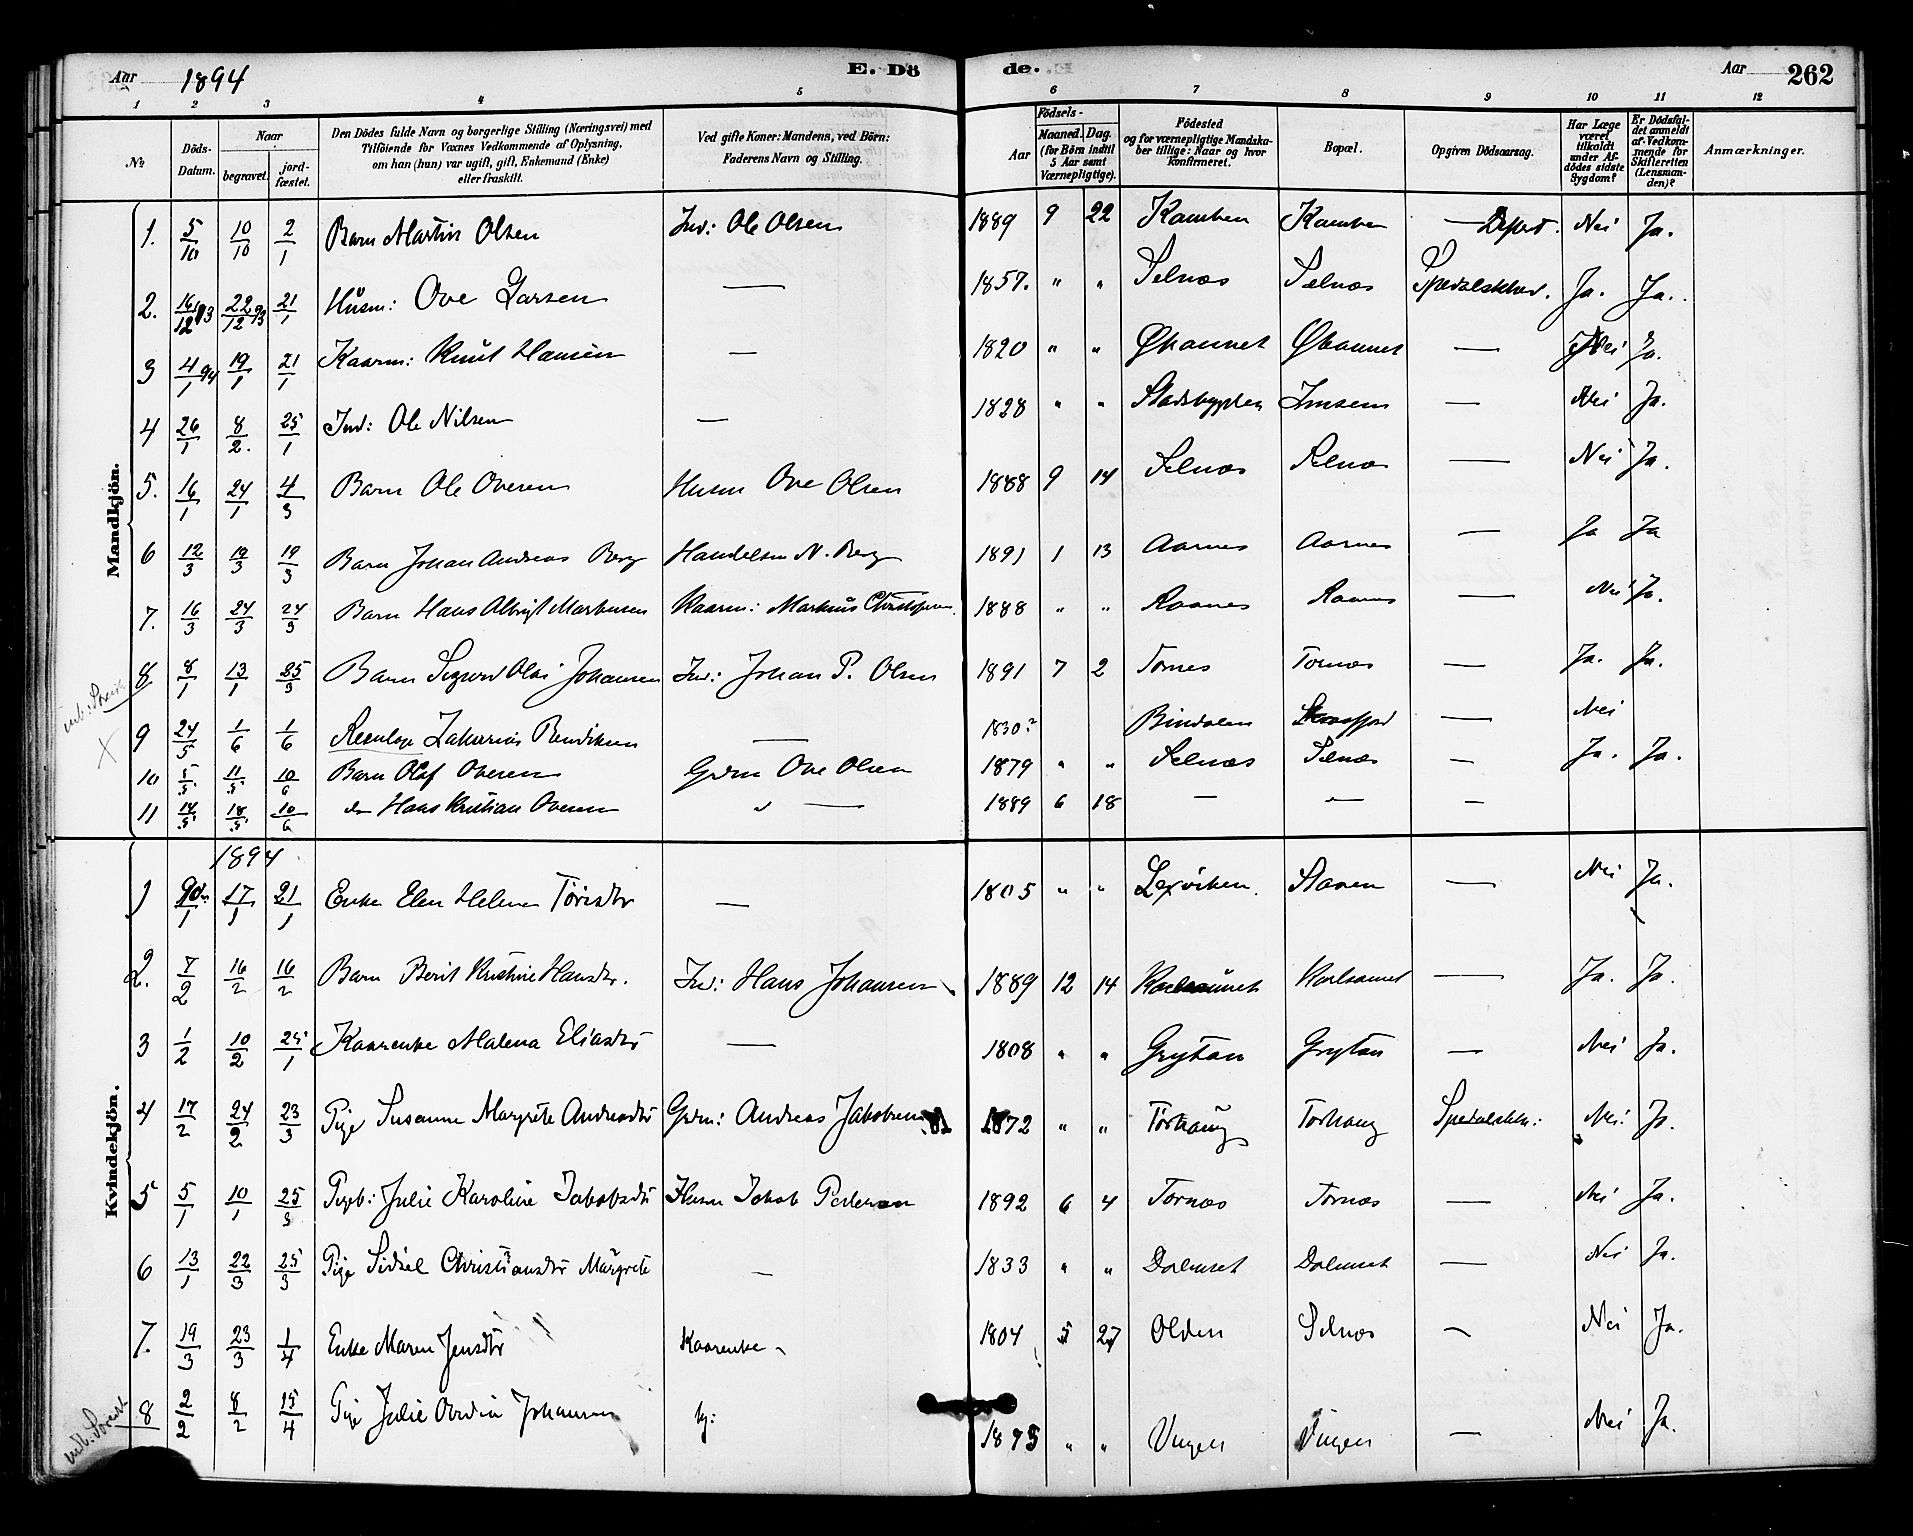 Aar 1894 E. Dö de. Aar 262
1 2 3 4 5 6 7 8 9 10 11 12
№ Döds-Datum. Naar begravet. jord-fæstet. Den Dödes fulde Navn og borgerlige Stilling (Næringsvei) med Tilföiende for Voxnes Vedkommende af Oplysning, om han (hun) var ugift, gift, Enkemand (Enke) eller fraskilt. Ved gifte Koner: Mandens, ved Börn: Faderens Navn og Stilling. Födsels- Aar Maaned. Dag. (for Börn indtil 5 Aar samt Værnepligtige). Födested og for værnepligtige Mandska-ber tillige: Naar og hvor konfirmeret. Bopæl. Opgiven Dödsaarsag. Har Læge været tilkaldt under Af-dödes sidste Sygdom? Er Dödsfal-det anmeldt af Vedkom-mende for Skifteretten (Lensman-den)? Anmærkninger.
Mandkjön.
1. 5/10 10/10 2/1 Barn Martin Olsen Ind: Ole Olsen 1889 9 22 Nei Ja.
2. 16/12 93 22/12 93 21/1 Husm: Ove Larsen — 1857. " " Selnæs Selnæs Ja. Ja.
3 4/1 94 19/1 21/1 Kaarm: Knut Hansen — 1820 " " — Nei Ja.
4 26/1 8/2. 25/1 Ind: Ole Nilsen — 1828 " " Stadsbygden — Nei Ja.
5. 16/1 24/1 4/3 Barn Ole Ovesen Husm Ove Olsen 1888 9 14 Selnæs Selnæs — Nei Ja.
6 12/3 19/3 19/3 Barn Johan Andreas Berg Handelsm N. Berg 1891 1 13 Aarnes Aarnes — Ja Ja
7. 16/3 24/3 24/3 Barn Hans Albrigt Markusen Kaarm: Markus Christophersen 1888 " " — Nei Ja.
8 8/1 13/1 25/3 Barn Sigurd Olai Johansen Ind: Johan P. Olsen 1891 7 2 Tornes Tornæs — Ja. Ja.
9 24/5 1/6 1/6 Zakarias Bendiksen — 1830? Bindalen — Nei
10 5/5 11/5 10/6 Barn Olaf Ovesen Grdm Ove Olsen 1879 " " Selnæs Selnæs — Ja. Ja.
11 14/5 18/5 10/6 do Hans Kristian Ovesen " — 1889 6 18 — — —
Kvindekjön.
1894
1 17/1 21/1 Enke Elen Helena — 1805 " " Lexviken. — Nei Ja.
2. 7/2 16/2 16/2 Barn Berit Kristine Hansdtr. Ind: Hans Johansen 1889 12 14 Karlsaunet Karlsaunet — Ja. Ja.
3 1/2 10/2 25/1 Kaarenke Malena Eliasdtr — 1808 " " Grytan Grytan — Nei Ja.
4 17/2 24/2 23/3 Pige Susanna Margrete Andreasdtr Grdm: Andreas Jakobsen 1872 " " Torhaug Torhaug Spedalskh: Nei. Ja.
5 5/1 10/1 25/3 Pigeb: Julie Karoline Jakobsdtr Husm Jakob Pedersen 1892 6 4 Tornæs Tornæs — Nei Ja.
6 13/1 22/3 25/3 Pige Sidsel Christiansdtr Margrete — 1833 " " Dalaunet Dalaunet — Nei Ja.
7. 19/3 23/3 1/4 Enke Maren Jensdtr Kaarenke 1804 5 27 Olden Selnæs — Nei Ja.
8 2/2 8/2 15/4 Pige Julie Johansen 1875 " " Vingen Vingen — Nei Ja.